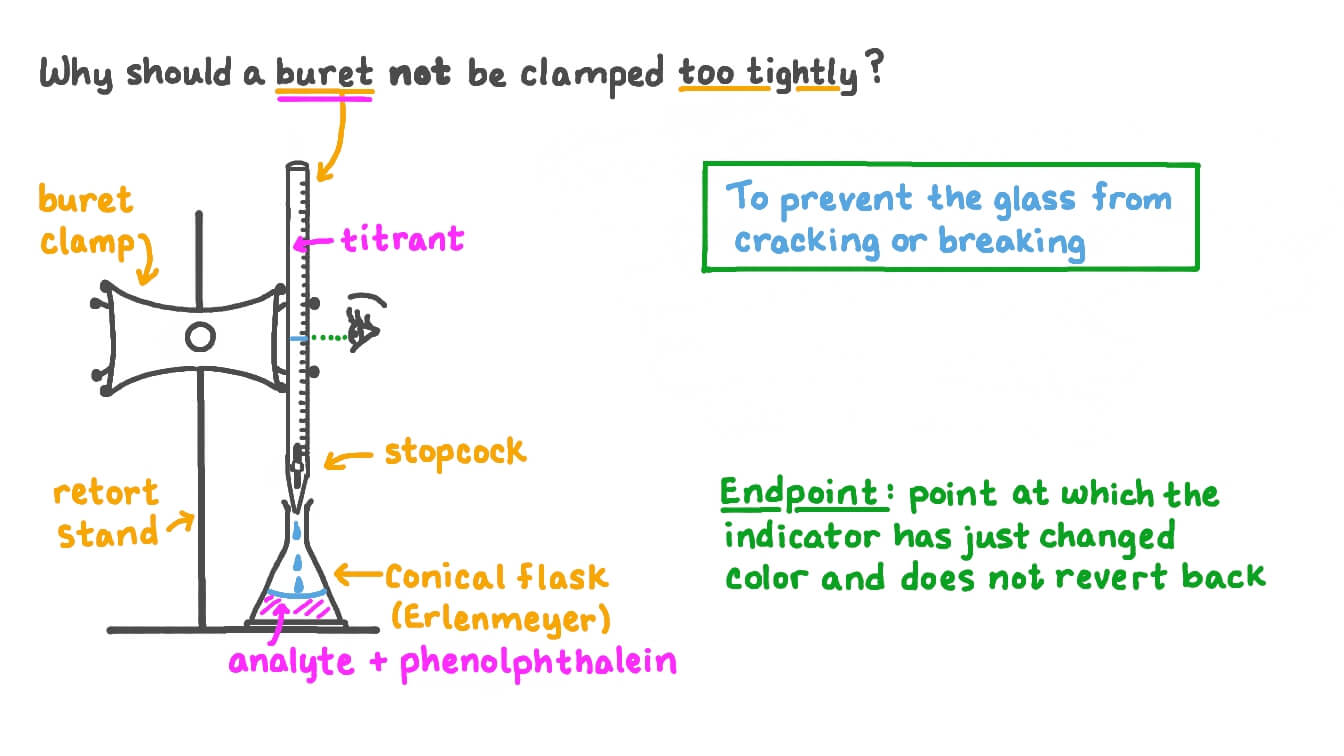 Why should a buret not be clamped too tightly?
buret
clamp
titrant
To prevent the glass from
cracking or breaking
stopcock
retort
stand
Endpoint: point at which the
indicator has just changed
color and does not revert back
Conical flask
(Erlenmeyer)
analyte + phenolphthalein